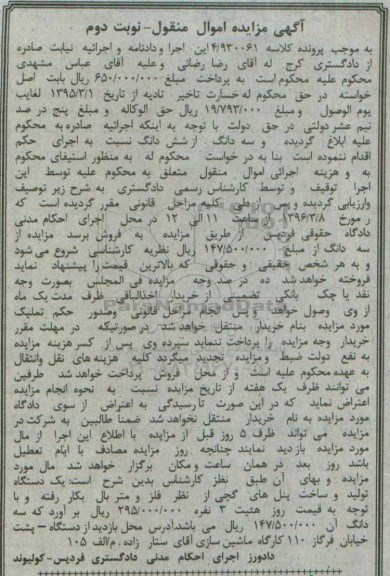 آگهی مزایده اموال منقول-نوبت دوم
به موجب پرونده کلاسه ۴/۹۳۰۰۶۱ این اجرا و دادنامه و اجرائیه نیابت صادره
از دادگستری کرج له آقای رضا رضائی و علیه آقای عباس مشهدی
محکوم علیه محکوم است به پرداخت مبلغ ۶۵۰/۰۰۰/۰۰۰ ریال بابت اصل
خواسته در حق محکوم له خسارت تاخیر تادیه از تاریخ ۱۳۹۵/۳/۱ لغایب
یوم الوصول و مبلغ ۱۹/۷۹۳/۰۰۰ ریال حق الوکاله و مبلغ پنج در صد
نیم عشر دولتی در حق دولت با توجه به اینکه اجرائیه صادره به محکوم
علیه ابلاغ گردیده و سه دانگ از شش دانگ نسبت به اجرای حکم
اقدام ننموده است بنا به در خواست محکوم له به منظور استیفای محکوم
به و هزینه اجرائی اموال منقول متعلق به محکوم علیه توسط این
اجرا توقیف و توسط کارشناس رسمی دادگستری به شرح زیر توصیف
وارزیابی گردیده و پس از طی کلیه مراحل قانونی مقرر گردیده است که
ر مورخ ۱۳۹۶/۳/۸ از ساعت ۱۱ الی ۱۲ در محل اجرای احکام مدنی
دادگاه حقوقی فردیس از طریق مزایده به فروش برسد مزایده از
سه دانگ از مبلغ ۱۴۷/۵۰۰/۰۰۰ ریال نظریه کارشناسی شروع می شود
و به هر شخص حقیقی و حقوقی که بالاترین قیمت را پیشنهاد نماید
فروخته خواهد شد ده در صد وجه مزایده فی المجلس بصورت وجه
نقد یا چک بانکی تضمینی از خریدار اخذ الباقی ظرف مدت یک ماه
از وی وصول خواهد و پس از انجام مراحل قانونی وصدور حکم تملیک
مورد مزایده بنام خریدار منتقل خواهد شد در صورتیکه در مهلت مقرر
خریدار وجه مزایده را پرداخت ننماید سپرده وی پس از کسر هزینه مزایده
به نفع دولت ضبط و مزایده تجدید میگردد کلیه هزینه های نقل وانتقال
به عهده محکوم علیه است و از محل فروش پرداخت خواهد شد طرفین
می توانند ظرف یک هفته از تاریخ مزایده نسبت به نحوه انجام مزایده
اعتراض نماید که در این صورت تا رسیدگی به اعتراض از سوی دادگاه
مورد مزایده به نام خریدار منتقل نخواهد شد ضمنا طالبین به شرکت در
مزایده می تواند ظرف ۵ روز قبل از مزایده با اطلاع این اجرا از مال
مورد مزایده بازدید نمایند چنانچه روز مزایده مصادف با ایام تعطیل
باشد روز بعد در همان ساعت و مکان برگزار خواهد شد مال مورد
مزایده و بهای آن طبق نظر کارشناس بدین شرح است: یک دستگاه
تولید و ساخت پنل های گچی از نظر فلز و متر بال بکار رفته و با
توجه به قیمت روز هئیت ۳ نفره ۲۹۵/۰۰۰/۰۰۰ ریال بر آورد که سه
دانگ آن ۱۴۷/۵۰۰/۰۰۰ ریال می باشد آدرس محل بازدید از دستگاه - پشت
خیابان فرگاز ۱۱۰ کارگاه ماشین سازی آقای ستار زاده. م/الف ۱۰۵
دادورز اجرای احکام مدنی دادگستری فردیس-کولیوند